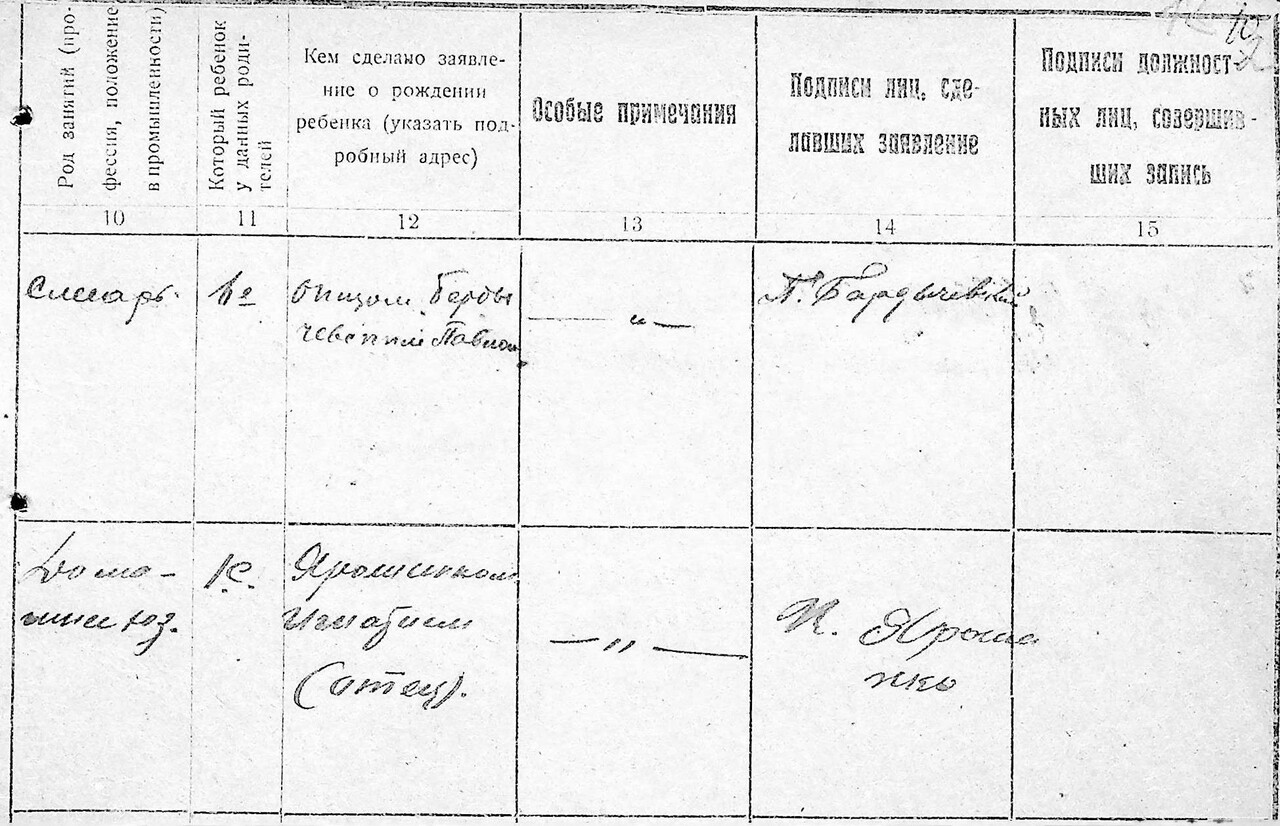 Род занятий (про-
фессия, положение
в промышленности)
Который ребенок
у данных роди-
телей
Кем сделано заявле-
ние о рождении
ребенка (указать под-
робный адрес)
Особые примечания
Подписи лиц, сде-
лавших заявление
Подписи должност-
ных лиц, совершив-
ших запись
10
11
12
13
14
15
Слесарь
1й
Отцом Берды
чевским Павлом
— " —
П. Бардычевский
Домо-
хоз.
Ярошенком
Игнатием
(отец).
— " —
И. Яроше
нко